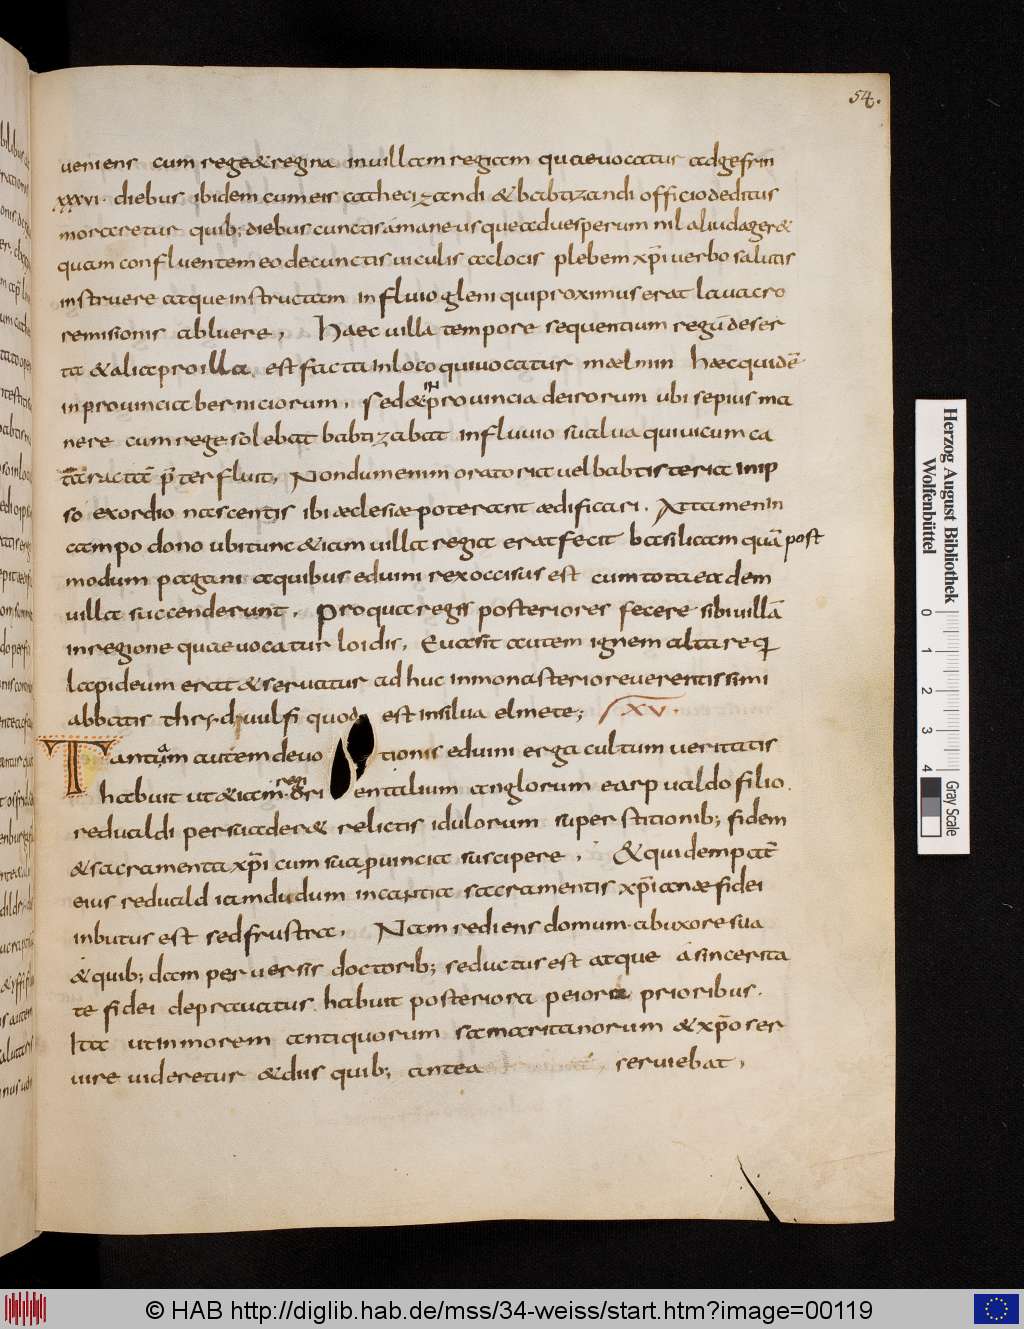 54.
ueniens cum rege & regina in uillam regiam quae uocatur adgefrin
xxxvi. diebus ibidem cum eis cathecizandi & babtizandi officio deditus
moraretur quib; diebus cunctis a mane usque ad uesperum nil aliud ager&
quam confluentem eo de cunctis uiculis ac locis plebem xp̄i uerbo salutis
instruere atque instructam in fluio gleni qui proximus erat lauacro
remisionis abluere, Haec uilla tempore sequentium regū deser
ta & alia pro illa est facta in loco qui uocatur mælmin hæc quidē
in prouincia berniciorum, sed & in prouincia deirorum ubi sepius ma
nere cum rege solebat babtizabat in fluuio sualua qui uicum ca
taractā p̄terfluit, Nondum enim oratoria uel babtisteria in ip
so exordio nascentis ibi æclesiæ poterant ædificari. Attamen in
campo dono ubi tunc & iam uilla regia erat fecit basilicam quā post
modum pagani a quibus eduini rex occisus est cum tota eadem
uilla succenderunt, Pro qua regis posteriores fecere sibi uillā
in regione quae uocatur loidis, Euasit autem ignem altare q;
lapideum erat & seruatur adhuc in monasterio reuerentissimi
abbatis thrs. djuulfi quod est in silua elmete; XV.
Tantum autem deuo tionis eduini erga cultum ueritatis
habuit ut & iam regi ori entalium anglorum earpualdo filio
redualdi persuader& relictis idulorum superstitionib; fidem
& sacramenta xp̄i cum sua puincia suscipere, & quidem patē
eius reduald iamdudum in cantia sacramentis xp̄ianæ fidei
inbutus est sed frustra, Nam rediens domum ab uxore sua
& quib;dam peruersis doctorib; seductus est atque a sincerita
te fidei deprauatus habuit posteriora peiora prioribus.
Ita ut in morem antiquorum samaritanorum & xp̄o ser
uire uideretur & diis quib; antea seruiebat,
Herzog August Bibliothek
Wolfenbüttel
0 1 2 3 4
Gray Scale
© HAB http://diglib.hab.de/mss/34-weiss/start.htm?image=00119